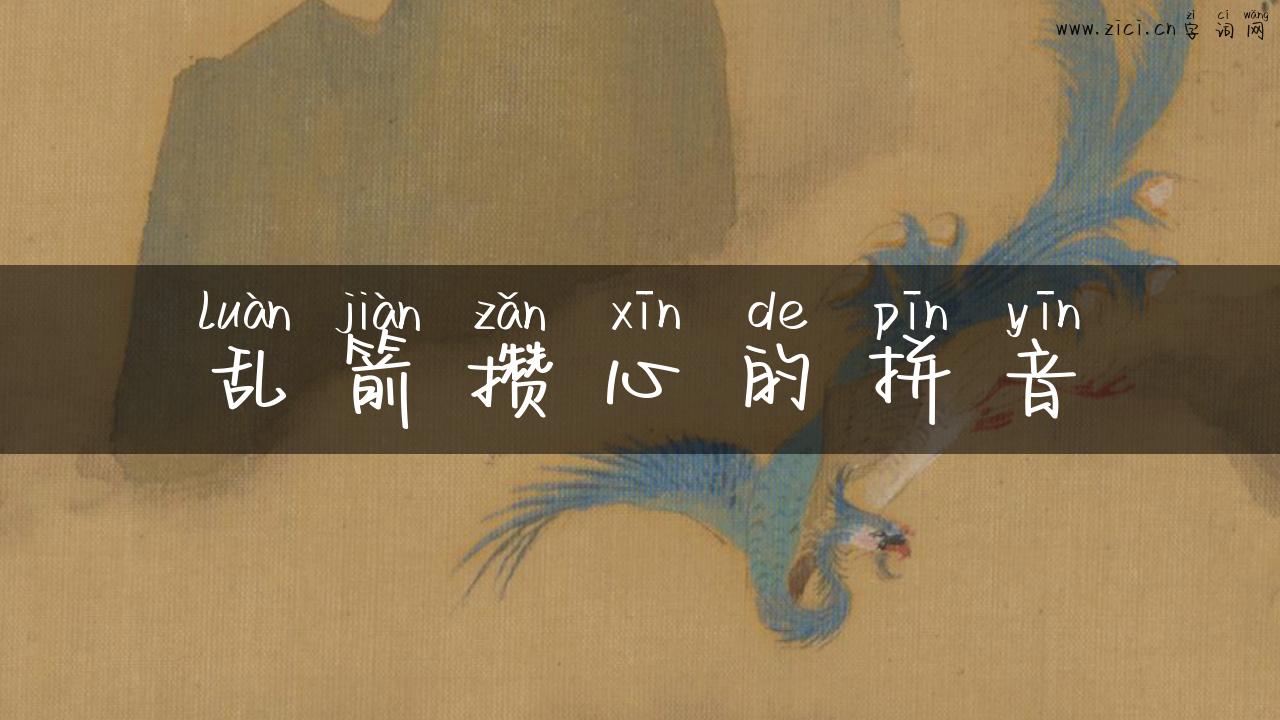 zì cí wǎng
www.zici.cn 字词网
luàn jiàn zǎn xīn de pīn yīn
乱箭攒心的拼音